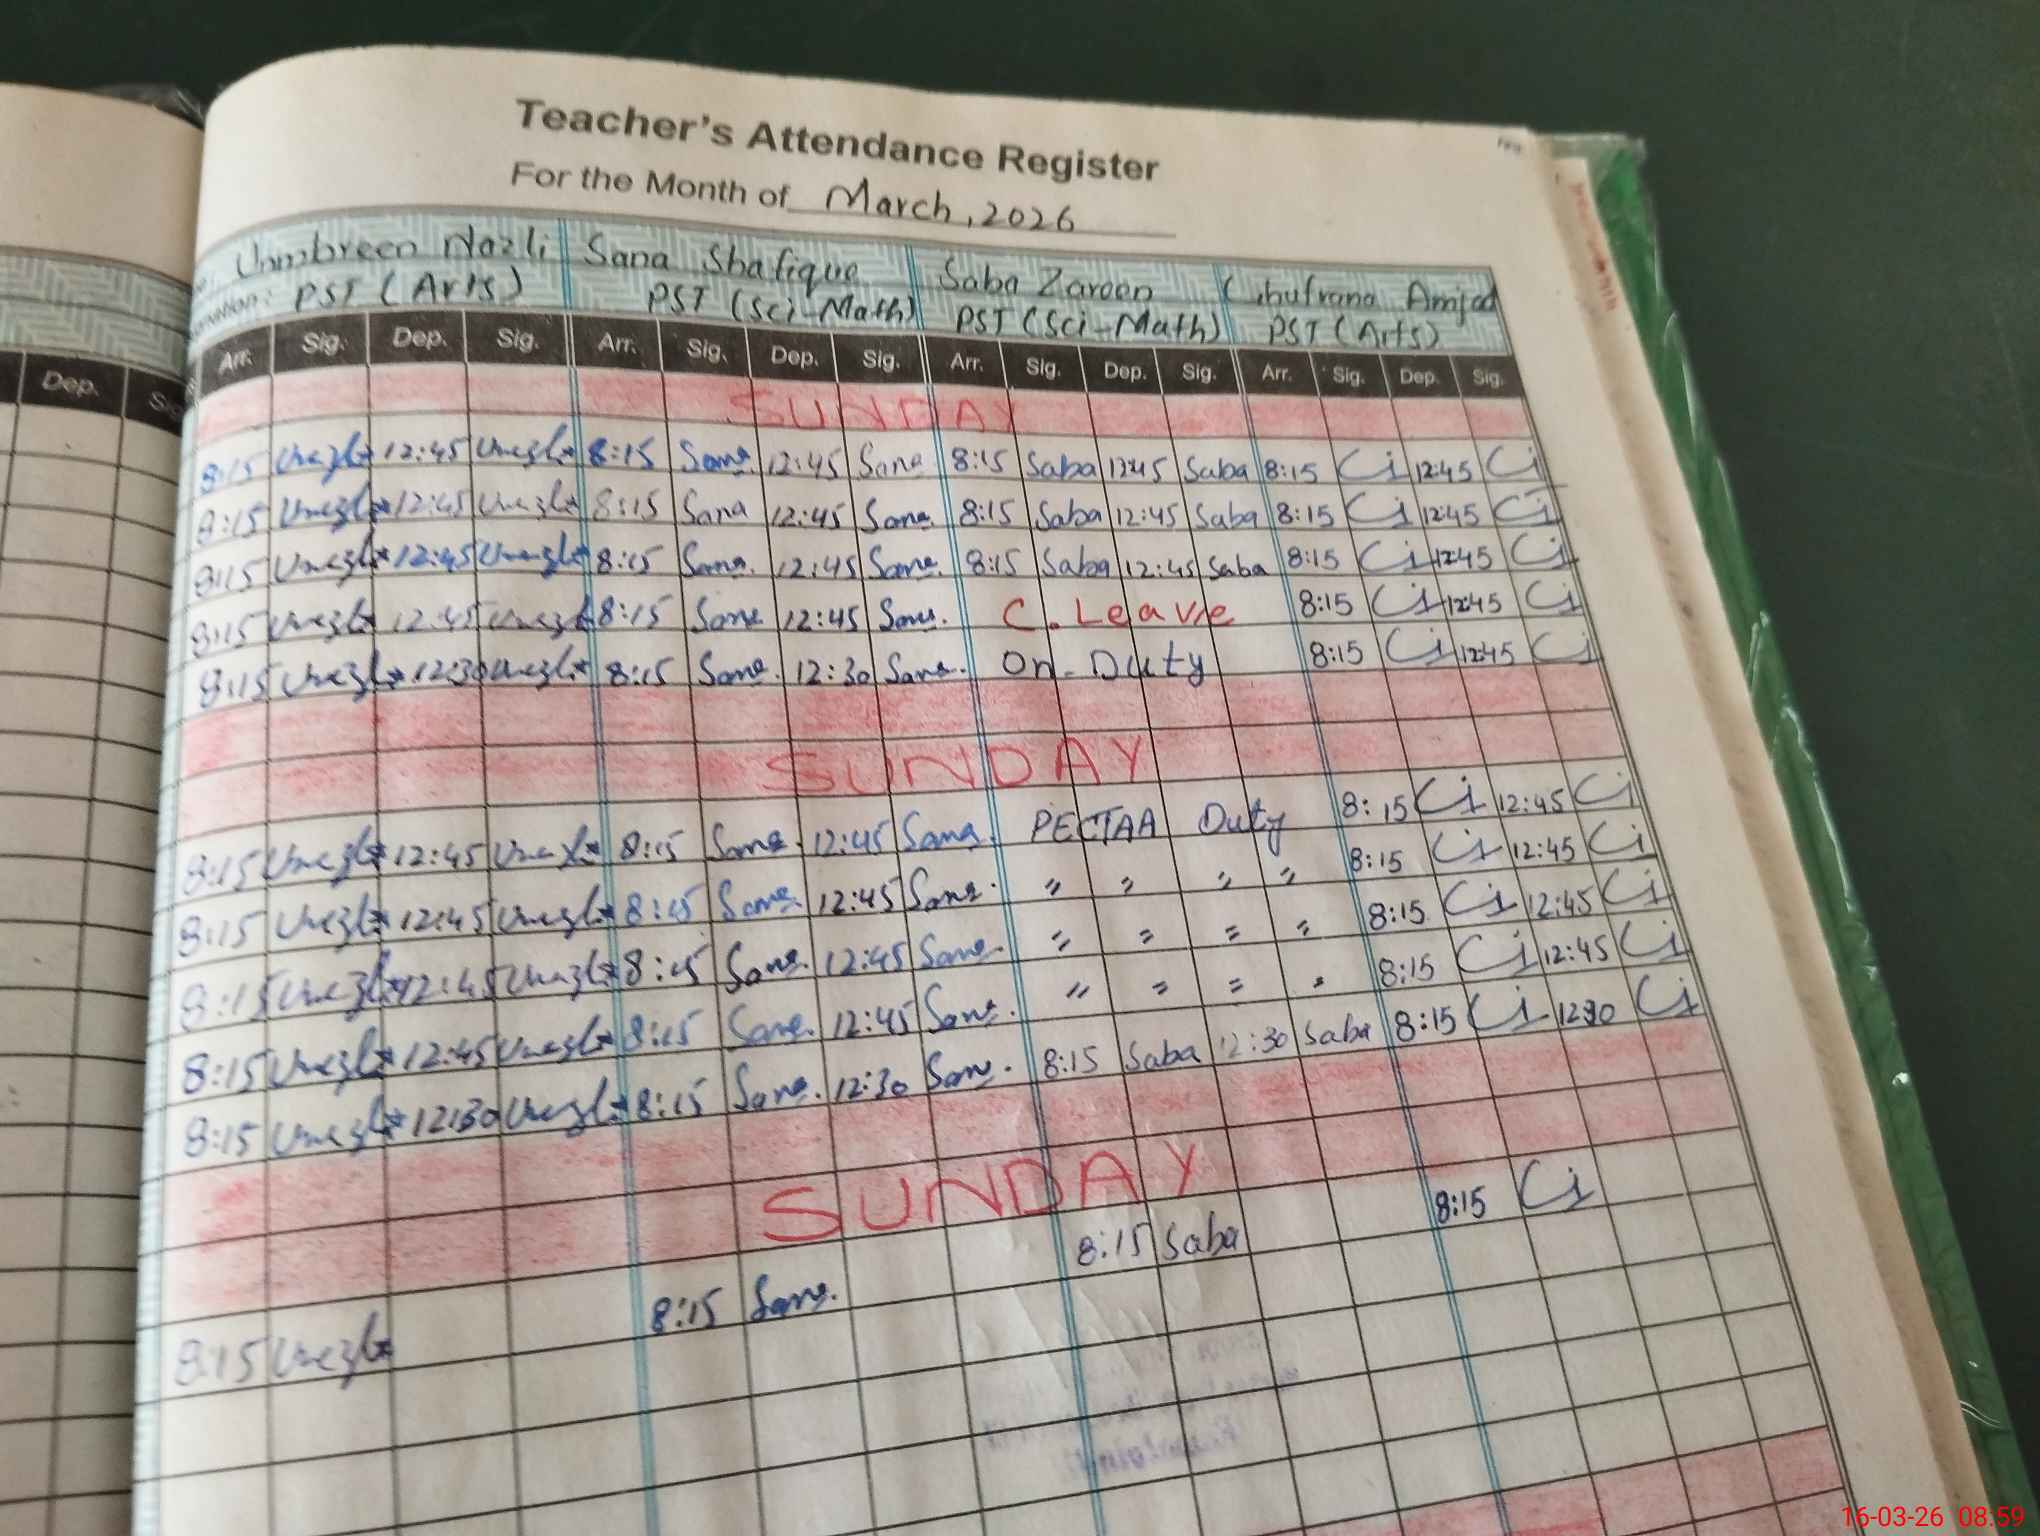 Teacher's Attendance Register
For the Month of March, 2026
Ummbreen Nazli Sana Shafique Saba Zareen Ghufrana Amjad
PST (Arts) PST (Sci-Math) PST (Sci-Math) PST (Arts)
Dep. Arr. Sig. Dep. Sig. Arr. Sig. Dep. Sig. Arr. Sig. Dep. Sig. Arr. Sig. Dep. Sig.
SUNDAY
8:15 12:45 8:15 Sana 12:45 Sana 8:15 Saba 12:45 Saba 8:15 12:45
8:15 12:45 8:15 Sana 12:45 Sana 8:15 Saba 12:45 Saba 8:15 12:45
8:15 12:45 8:15 Sana 12:45 Sana 8:15 Saba 12:45 Saba 8:15 12:45
8:15 12:45 8:15 Sana 12:45 Sana C. Leave 8:15 12:45
8:15 12:30 8:15 Sana 12:30 Sana On-Duty 8:15 12:45
SUNDAY
8:15 12:45 8:15 Sana 12:45 Sana PECTAA Duty 8:15 12:45
8:15 12:45 8:15 Sana 12:45 Sana " " " " 8:15 12:45
8:15 12:45 8:15 Sana 12:45 Sana " " " " 8:15 12:45
8:15 12:45 8:15 Sana 12:45 Sana " " " " 8:15 12:45
8:15 12:30 8:15 Sana 12:30 Sana 8:15 Saba 12:30 Saba 8:15 12:30
SUNDAY
8:15 8:15 Sana 8:15 Saba 8:15
16-03-26 08:59